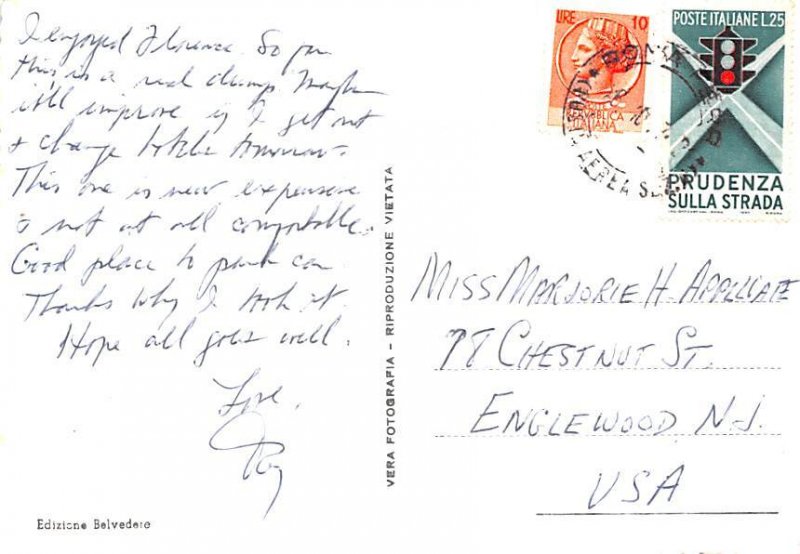 I enjoyed Florence. So far
this is a real dump. Maybe
it'll improve if I get out
& change hotels tomorrow.
This one is new expensive
& not at all comfortable.
Good place to park car
Thanks why I took it.
Hope all goes well.
Love,
Ray
Edizione Belvedere
VERA FOTOGRAFIA - RIPRODUZIONE VIETATA
LIRE 10
REPUBBLICA
ITALIANA
POSTE ITALIANE L.25
PRUDENZA
SULLA STRADA
ROMA
AEREA
MISS MARJORIE H. APPLEGATE
78 CHESTNUT ST.
ENGLEWOOD N.J.
USA